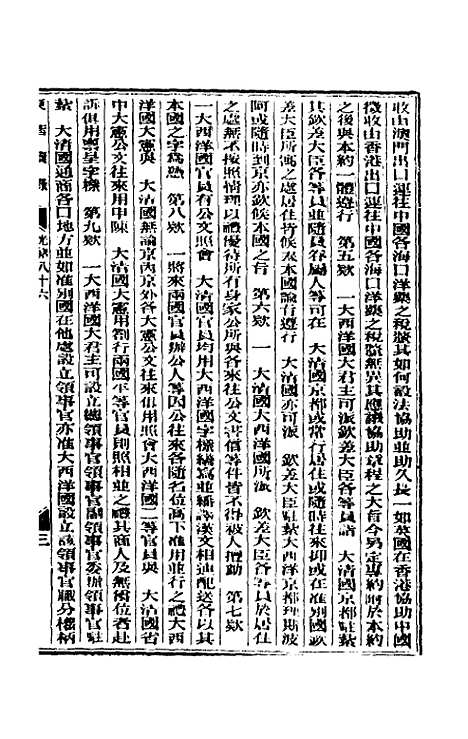 收由澳門出口運往中國各海口洋藥之稅釐其如何設法協助並助久長一如英國在香港協助中國
徵收由香港出口運往中國各海口洋藥之稅釐無異其應議協助章程之大旨今另定專約附於本約
之後與本約一體遵行　第五款　一大西洋國大君主可派欽差大臣各等官員詣　大清國京都駐紮
其欽差大臣各等員並隨員眷屬人等可在　大清國京都或常行居住或隨時往來抑或在准別國欽
差大臣所寓之處居住皆候及本國諭行遵行　大清國亦可派　欽差大臣駐紮大西洋京都理斯波
阿或隨時到京亦欽候本國之旨　第六款　一　大清國大西洋國所派　欽差大臣各等員於居住
之處無不按照情理以禮優待所有身家公所與各來往公文書信等件皆不得被人擅動　第七款
一大西洋國官員有公文照會　大清國官員均用大西洋國字樣繕寫並繙譯漢文相連配送各以其
本國之字為憑　第八款　一將來兩國官員辦公人等因公往來各隨名位高下准用並行之禮大西
洋國大憲與　大清國無論京內京外各大憲公文往來俱用照會大西洋國二等官員與　大清國省
中大憲公文往來用申陳　大清國大憲用劄行兩國平等官員則照相並之禮其商人及無銜位者赴
訴俱用稟呈字樣　第九款　一大西洋國大君主可設立總領事官領事官副領事官委辦領事官駐
紮　大清國通商各口地方並如准別國在他處設立領事官亦准大西洋國設立該領事官職分權柄
東華續錄　光緒八十六　三